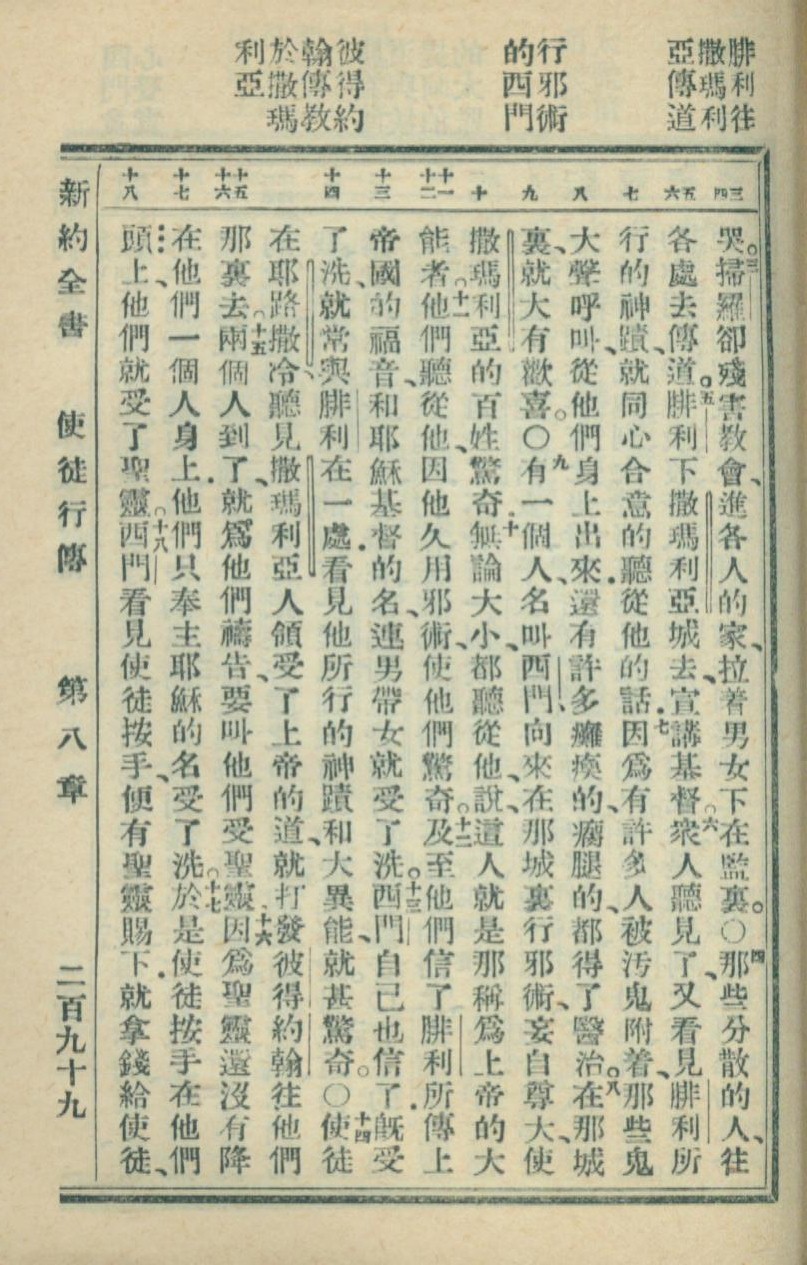 腓利往
撒瑪利
亞傳道
行邪術
的西門
彼得約
翰傳教
於撒瑪
利亞
三 四
五 六
七
八
九
十
十一 十二
十三
十四
十五 十六
十七
十八
哭。三掃羅卻殘害教會、進各人的家、拉着男女下在監裏。○四那些分散的人、往
各處去傳道。五腓利下撒瑪利亞城去、宣講基督。六衆人聽見了、又看見腓利所
行的神蹟、就同心合意的聽從他的話.七因爲有許多人被汚鬼附着、那些鬼
大聲呼叫、從他們身上出來.還有許多癱瘓的、瘸腿的、都得了醫治。八在那城
裏、就大有歡喜。○九有一個人、名叫西門、向來在那城裏行邪術、妄自尊大、使
撒瑪利亞的百姓驚奇.十無論大小、都聽從他、說、這人就是那稱爲上帝的大
能者。十一他們聽從他、因他久用邪術、使他們驚奇。十二及至他們信了腓利所傳上
帝國的福音、和耶穌基督的名、連男帶女就受了洗。十三西門自己也信了.旣受
了洗、就常與腓利在一處.看見他所行的神蹟和大異能、就甚驚奇。○十四使徒
在耶路撒冷、聽見撒瑪利亞人領受了上帝的道、就打發彼得約翰往他們
那裏去。十五兩個人到了、就爲他們禱告、要叫他們受聖靈.十六因爲聖靈還沒有降
在他們一個人身上.他們只奉主耶穌的名受了洗。十七於是使徒按手在他們
頭上、他們就受了聖靈。十八西門看見使徒按手、便有聖靈賜下.就拿錢給使徒、
新約全書 使徒行傳 第八章 二百九十九